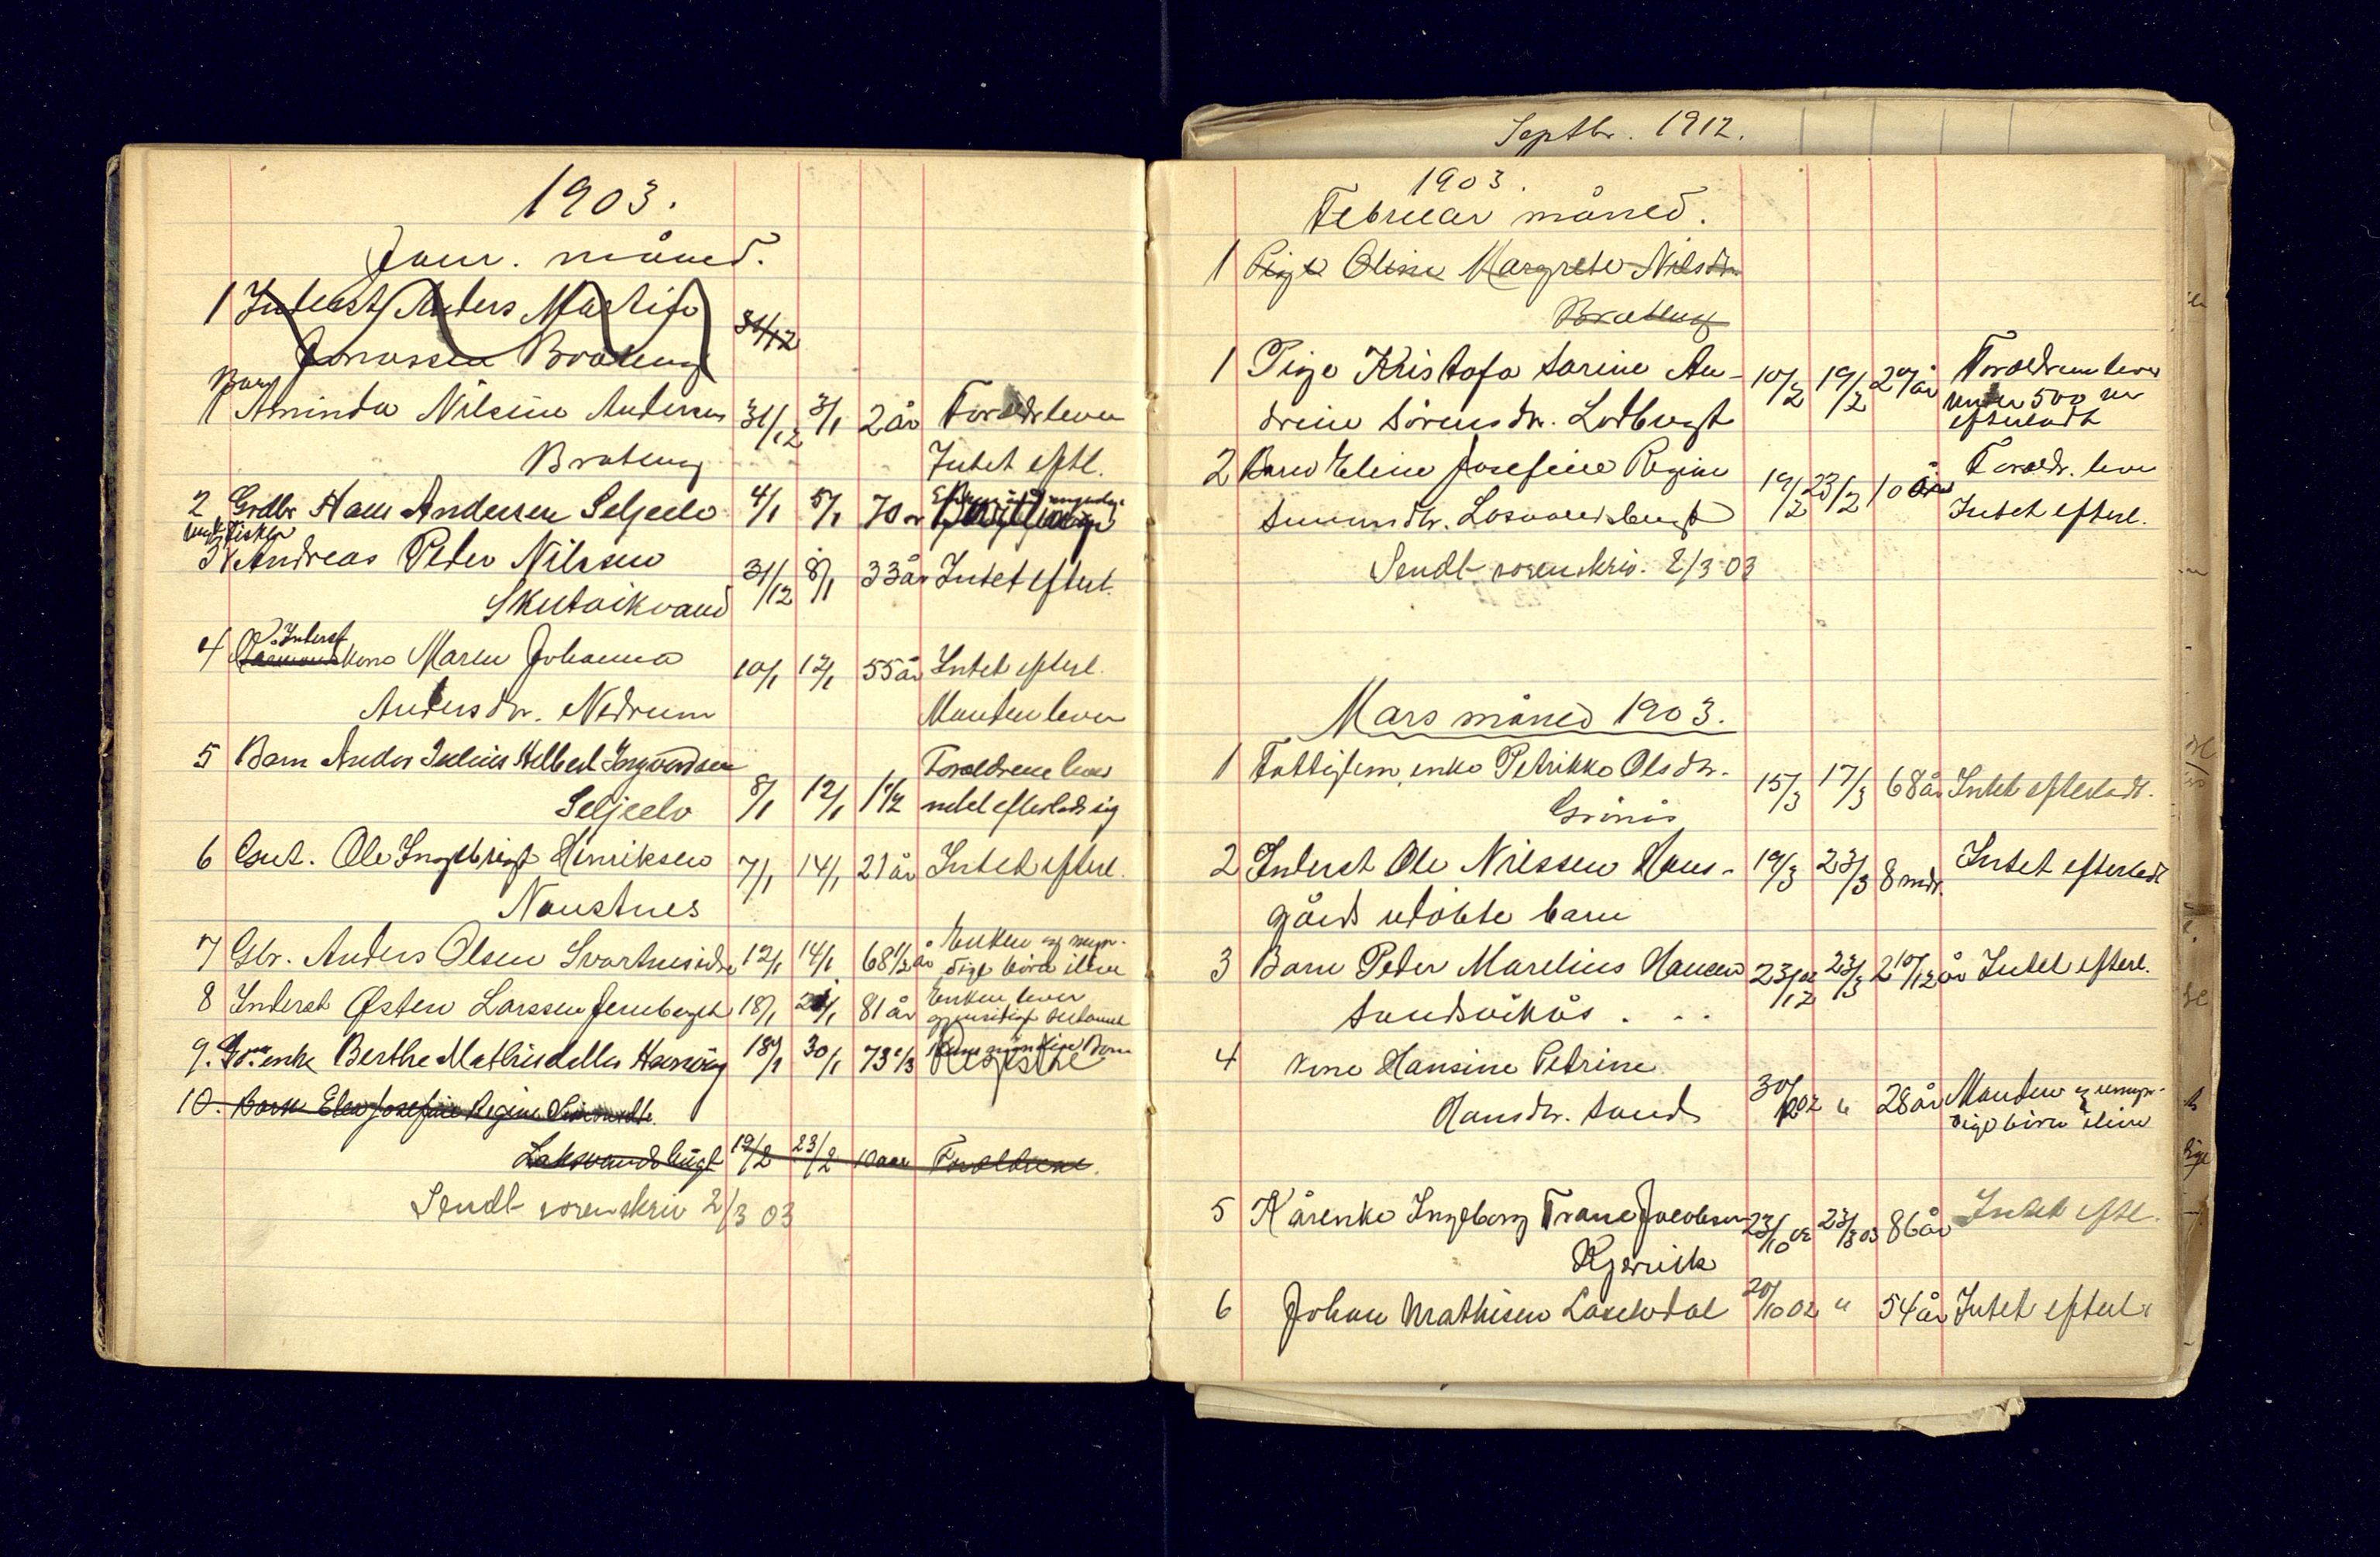 1903.
Janr. måned.
1 Inderst Anders Martin 31/12
Jonassen Bratteng
Barn
1 Aminda Nilsine Andersen 31/12 3/1 2 år Forældr lever
Brateng Intet eftl.
2 Grdbr Hans Andersen Seljeelv 4/1 5/1 70 år
ungk. Fisker
3 Andreas Peder Nilssen 31/12 8/1 33 år Intet efterl.
Skutvikvand
Inderst
4 kone Maren Johanna 10/1 12/1 55 år Intet efterl.
Andersdr. Nedrum Manden lever
5 Barn Andor Julius Hilbert Ingvardsen Forældrene lever
Seljeelv 8/1 12/1 1 1/2 intet efterladt sig
6 Gut. Ole Ingebrigt Hinriksen 7/1 14/1 21 år Intet efterl.
Naustnes
7 Gbr. Anders Olsen Svartneside 12/1 14/1 68 1/2 år Enken og umyn-
dige börn ilive
8 Inderst Østen Larssen Jernberget 18/1 81 år Enken lever
gjensidigt testament
9. enke Berthe Mathisdatter 18/1 30/1 73 1/3 Bare myndige Børn
10. Barn Elen Josefine Regine Simonsdtr.
Laksvandbugt 19/2 23/2 10 aar Forældrene.
Sendt sorenskriv 2/3 03
Septbr. 1912.
1903.
Februar måned.
1 Pige Oline Margrete Nilsdtr
Brateng
1 Pige Kristofa Sarine An- 10/2 19/2 20 år Forældrene lever
drine Sörensdr. Lodbugt under 500 kr
efterladt
2 Barn Eline Josefine Regine 19/2 23/2 10 år Forældr. lever
Simonsdtr. Laxvandsbugt Intet efterl.
Sendt sorenskriv. 2/3 03
Mars måned 1903.
1 Fattiglem, enke Petrikke Olsdtr. 15/3 17/3 68 år Intet efterladt.
Grönås
2 Inderst Ole Nilssen Hans- 19/3 23/3 8 mdr. Intet efterladt
gårds udöbte barn
3 Barn Peder Marelius Hansen 23/12 02 23/3 2 10/12 år Intet efterl.
Sandsvikås . . .
4 kone Hansine Petrine
Hansdr. Sand 30/10 02 " 28 år Manden og umyn-
dige börn ilive
5 Kårenke Ingeborg Trane Jacobsen 23/10 02 23/3 03 86 år Intet eftl.
Kjervik
6 Johan Mathisen Lakselvdal 20/10 02 " 54 år Intet efterl.